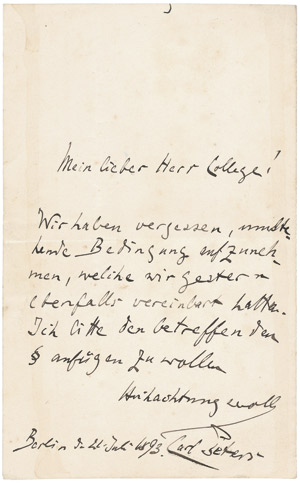 Mein lieber Herr College!
Wir haben vergessen, umste-
hende Bedingung aufzuneh-
men, welche wir gestern
ebenfalls vereinbart hatten.
Ich bitte den betreffenden
§ anfügen zu wollen
Hochachtungsvoll
Berlin d. Juli 1893. Carl Peters